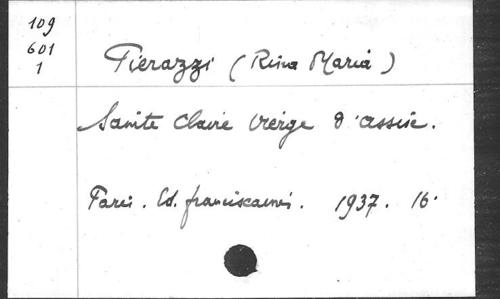 109
601
1
Pierazzi (Rina Maria)
Sainte Claire Vierge d'assise.
Paris. Ed. franciscaines. 1937. 16°